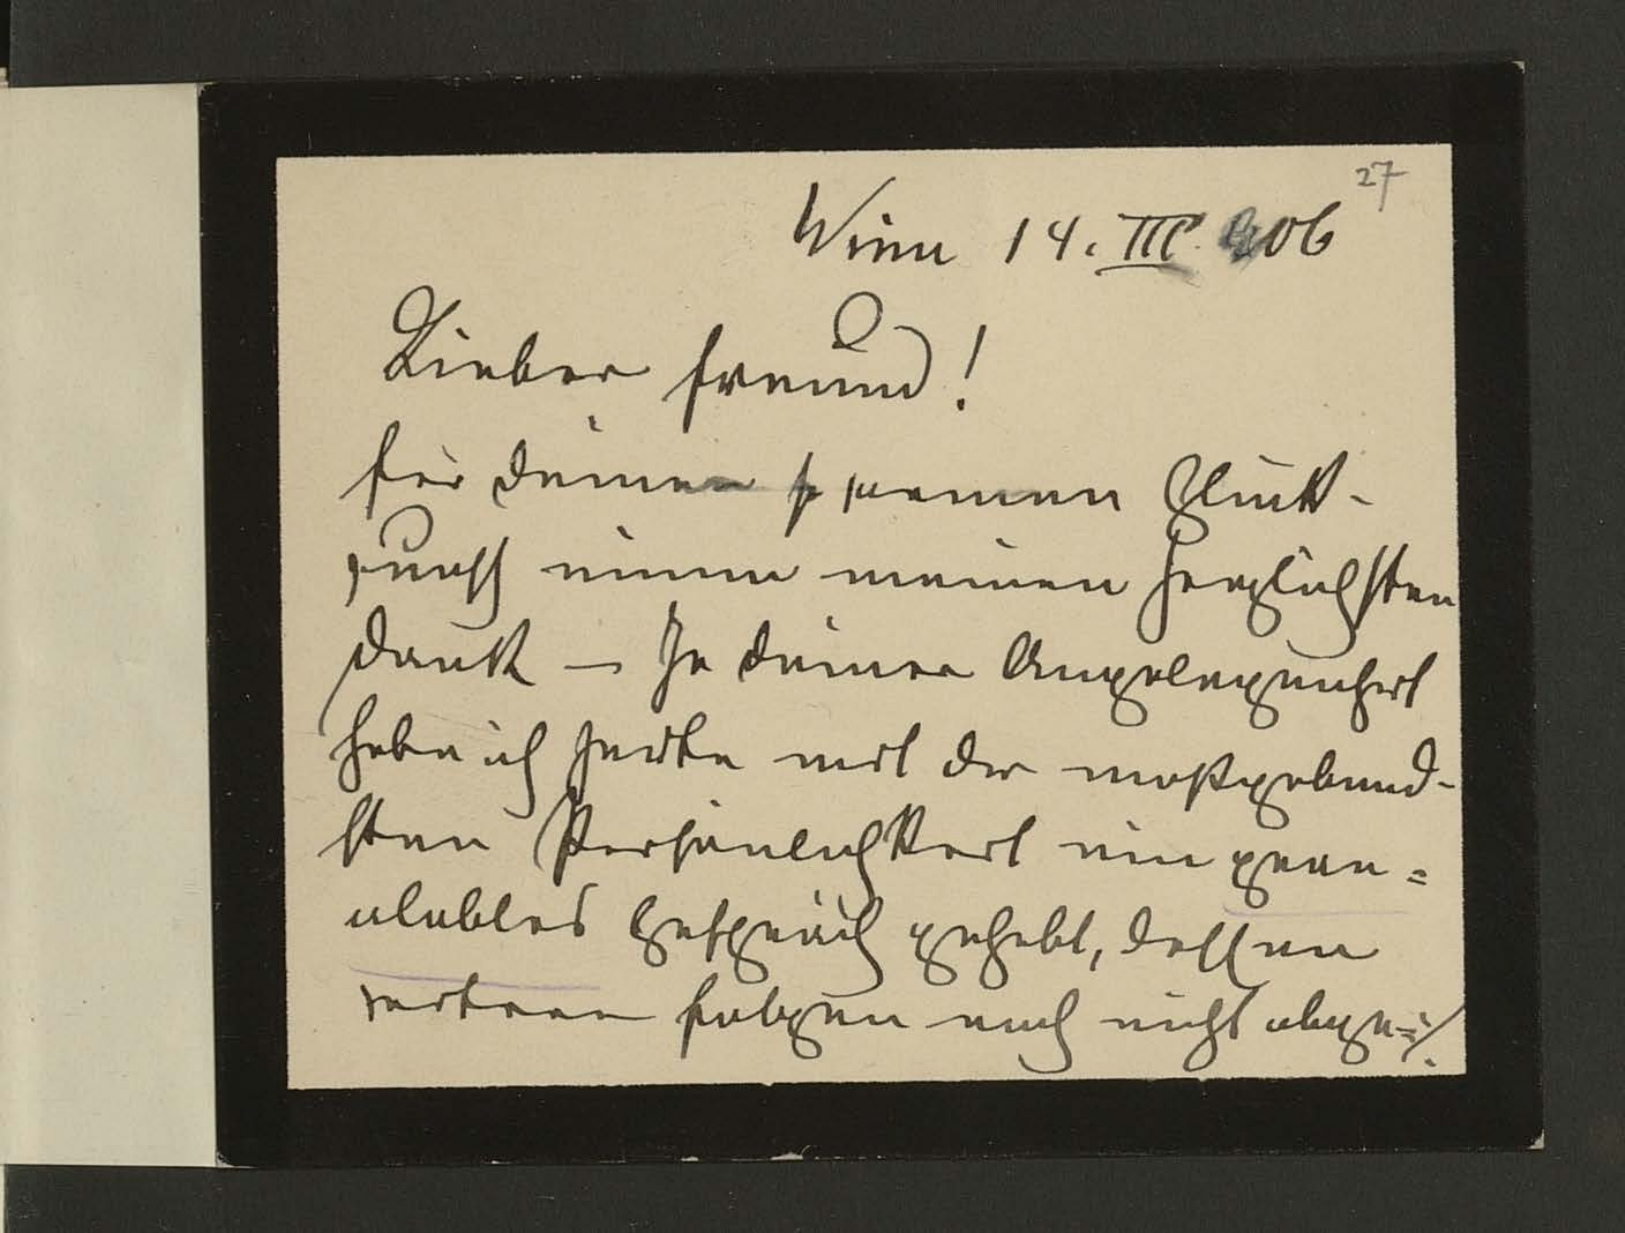 27
Wien 14. III. 906
Lieber Freund!
Für Deinen warmen Glück-
wunsch nimm meinen herzlichsten
Dank – In Deiner Angelegenheit
habe ich heute mit der maßgebend-
sten Persönlichkeit ein
Gespräch gehabt, dessen
weitere Folgen noch nicht abge=/.